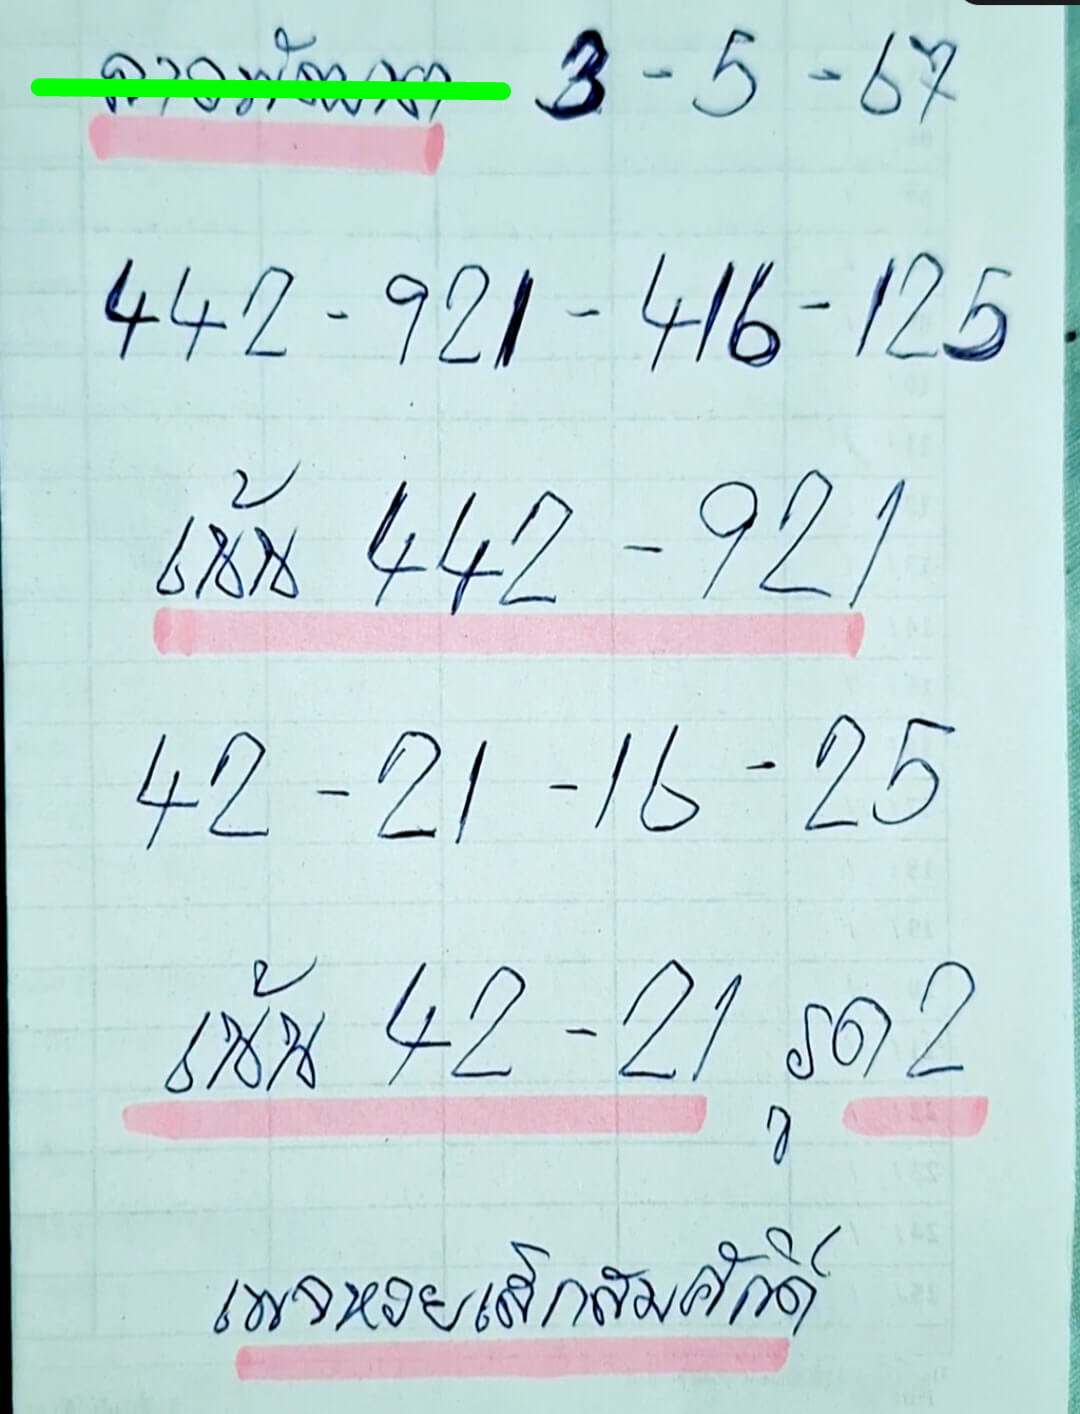 ลาวพัฒนา 3 - 5 - 67
442 - 921 - 416 - 125
เน้น 442 - 921
42 - 21 - 16 - 25
เน้น 42 - 21 รูด 2
เพจหวยเล็กสมศักดิ์